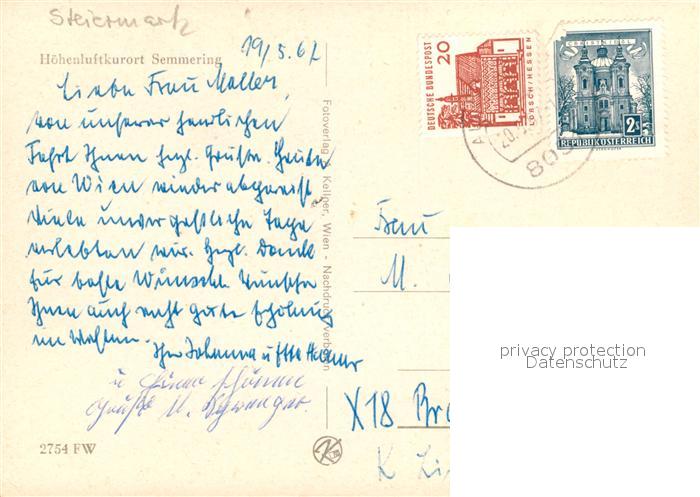 Steiermark
Höhenluftkurort Semmering
19/5.67
Liebe Frau Moller,
von unserer herrlichen
Fahrt Ihnen hrzl. Grüße. Heute
von Wien wieder abgereist
Viele unvergeßliche Tage
verlebten wir. Hrzl. Dank
für beste Wünsche. Wünsche
Ihnen auch recht gute Erholung
im
Ihre Johanna u Otto
u
Grüße M.
2754 FW
Fotoverlag Kellner, Wien - Nachdruck verboten
DEUTSCHE BUNDESPOST
20
LORSCH/HESSEN
CHRISTKINDL
2 S
REPUBLIK ÖSTERREICH
20.
Frau
M.
X18 Br
K Li
privacy protection
Datenschutz